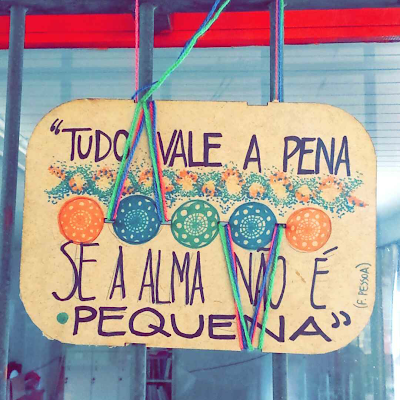 “TUDO VALE A PENA
SE A ALMA NÃO É
PEQUENA”
(F. PESSOA)